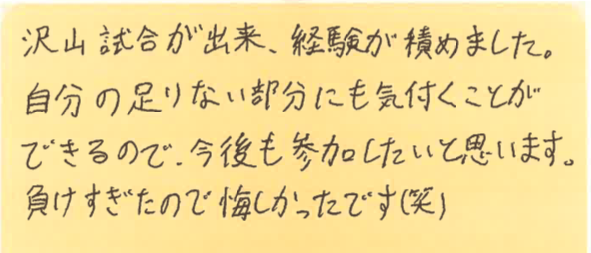 沢山試合が出来、経験が積めました。
自分の足りない部分にも気付くことが
できるので、今後も参加したいと思います。
負けすぎたので悔しかったです(笑)